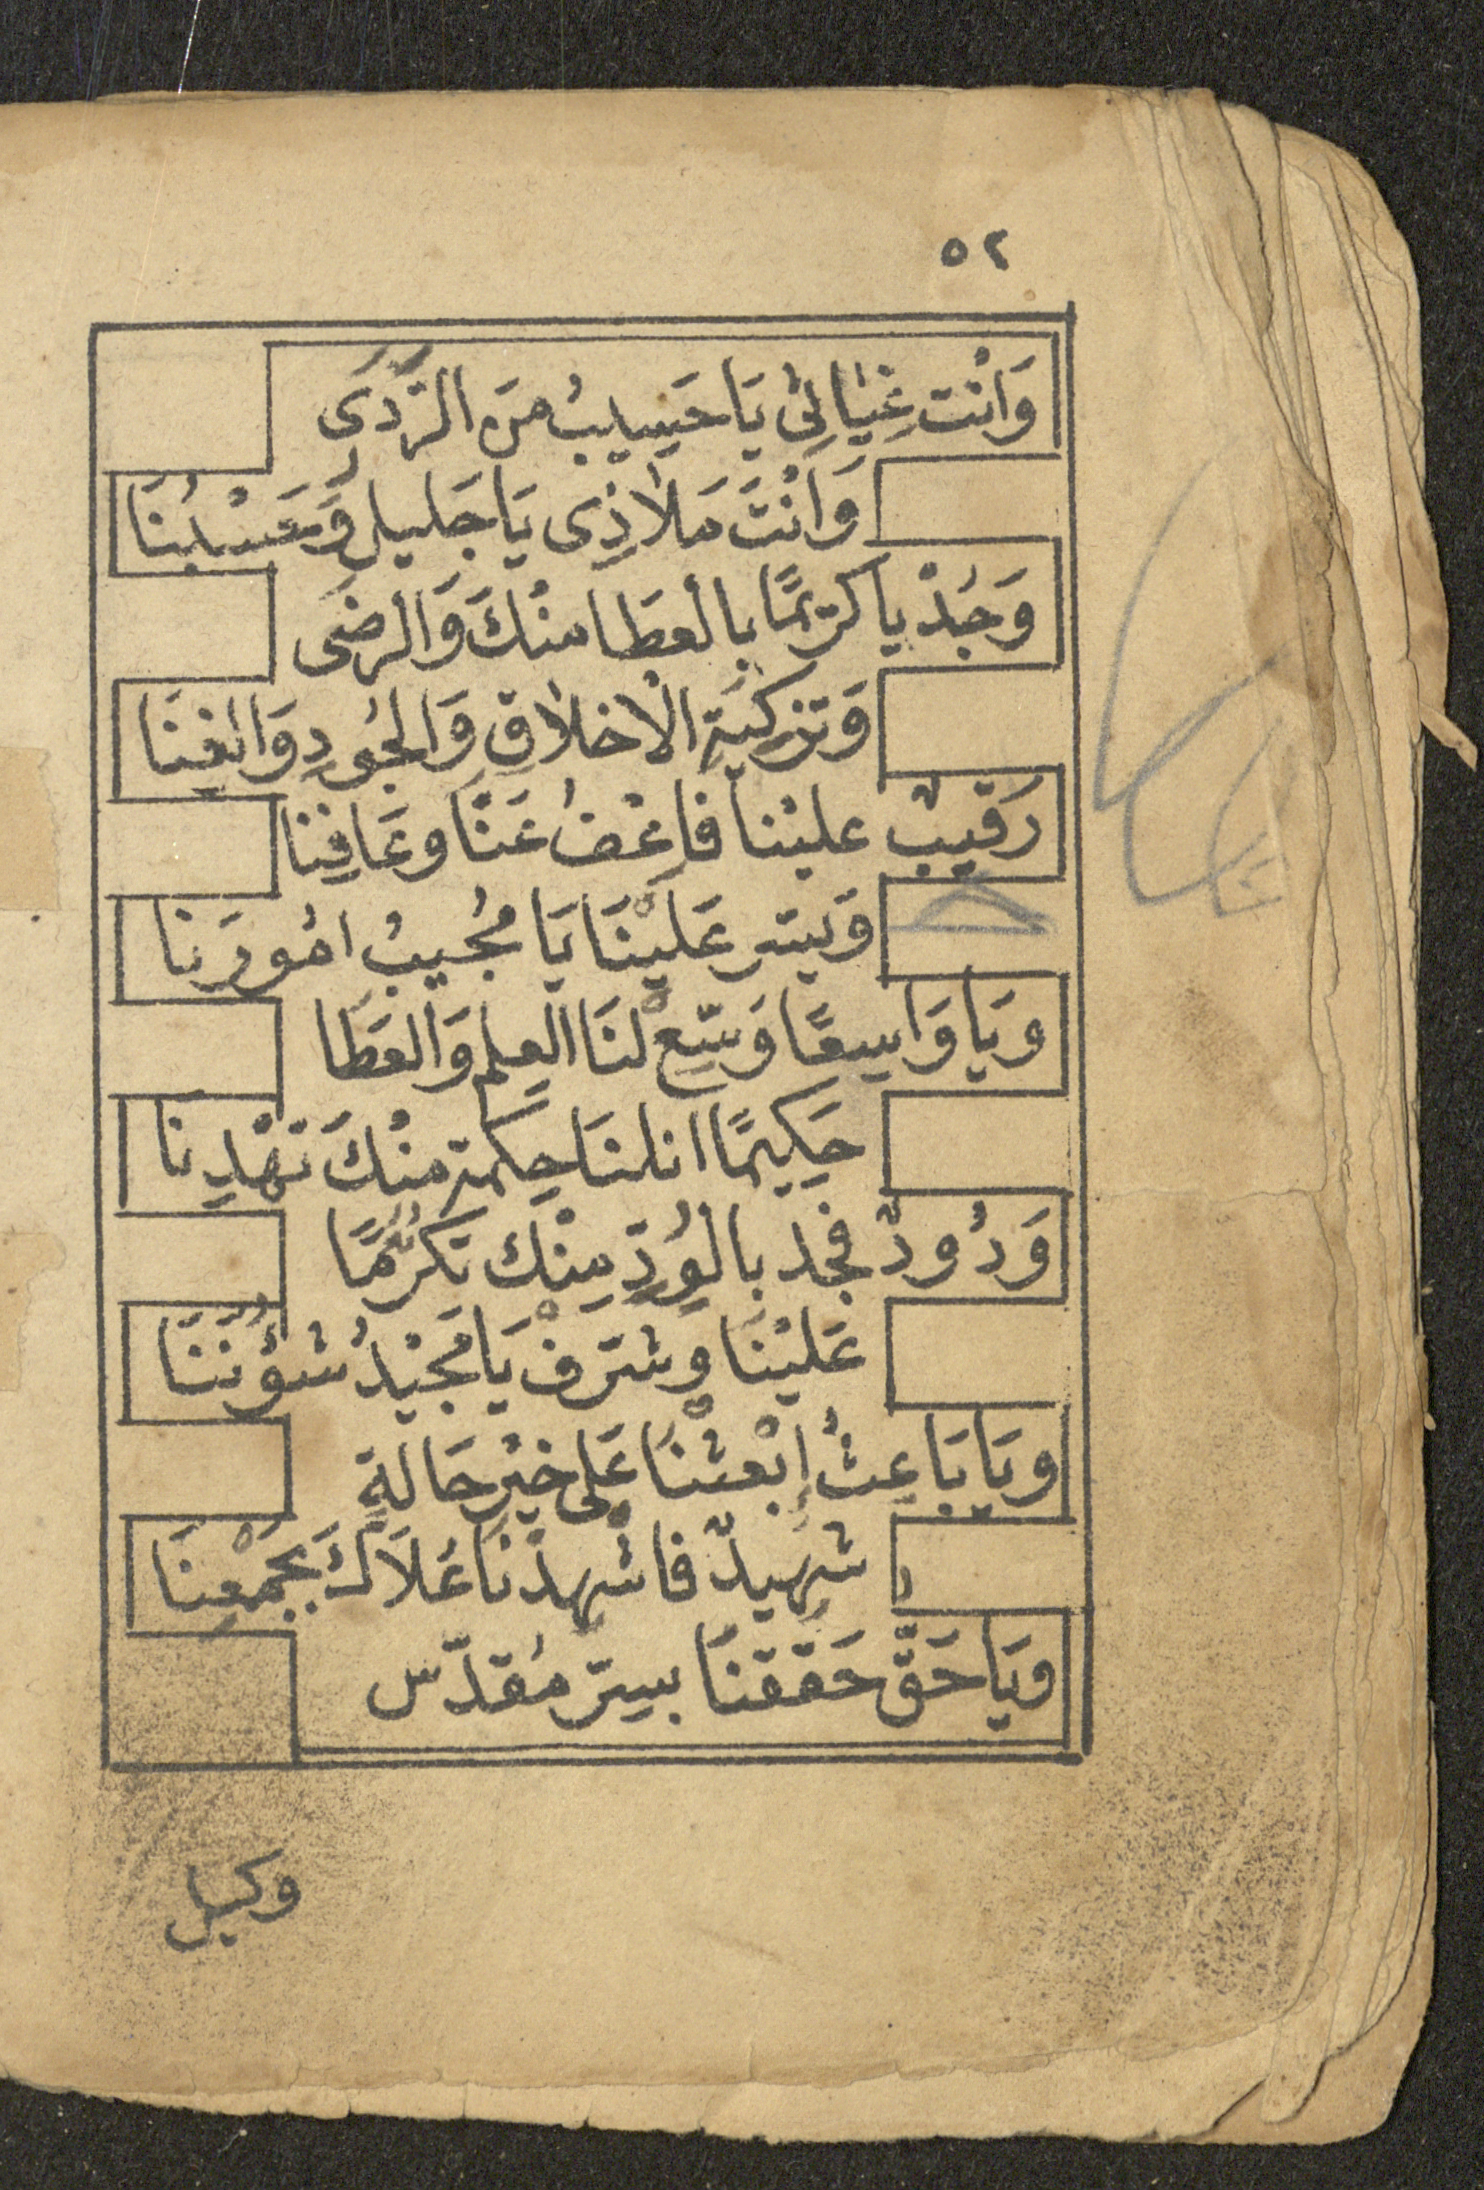 ٥٢
وَاَنْت غِيَاثِى يَا حَسِيبُ مِنَ الرَّدَى
وَاَنْتَ مَلَاذِى يَا جَلِيل وَحَسْبُنَا
وَجُدْ يا كَرِيمًا بِالعَطَا مِنْكَ وَالرِضَى
وَتزكِيَةِ الْاَخلَاقِ وَالجُودِ وَالغِنَا
رَقيبٌ عليْنا فَاعْفُ عَنَّا وعَافِنا
وَيسّر عَلَيْنَا يَا مُجيبُ امُورَنا
ويَا وَاسِعًا وَسِّعْ لنَا العِلم وَالعَطَا
حَكِيمًا انلنَا حِكمة مِنْكَ تهْدِنَا
وَدُودٌ فجُد بالوُدِّ مِنْك تكرُّمًا
عَليْنَا وشرّفْ يَا مَجْيدُ شؤنَنَا
ويَا بَاعِثُ اِبْعثْنَا عَلى خيْرِ حَالةٍ
شهِيدٌ فاشْهدْنَا عُلَاكَ بجَمْعِنَا
وَيَا حَقّ حَققنَا بسِرّ مُقدّس
وكيل